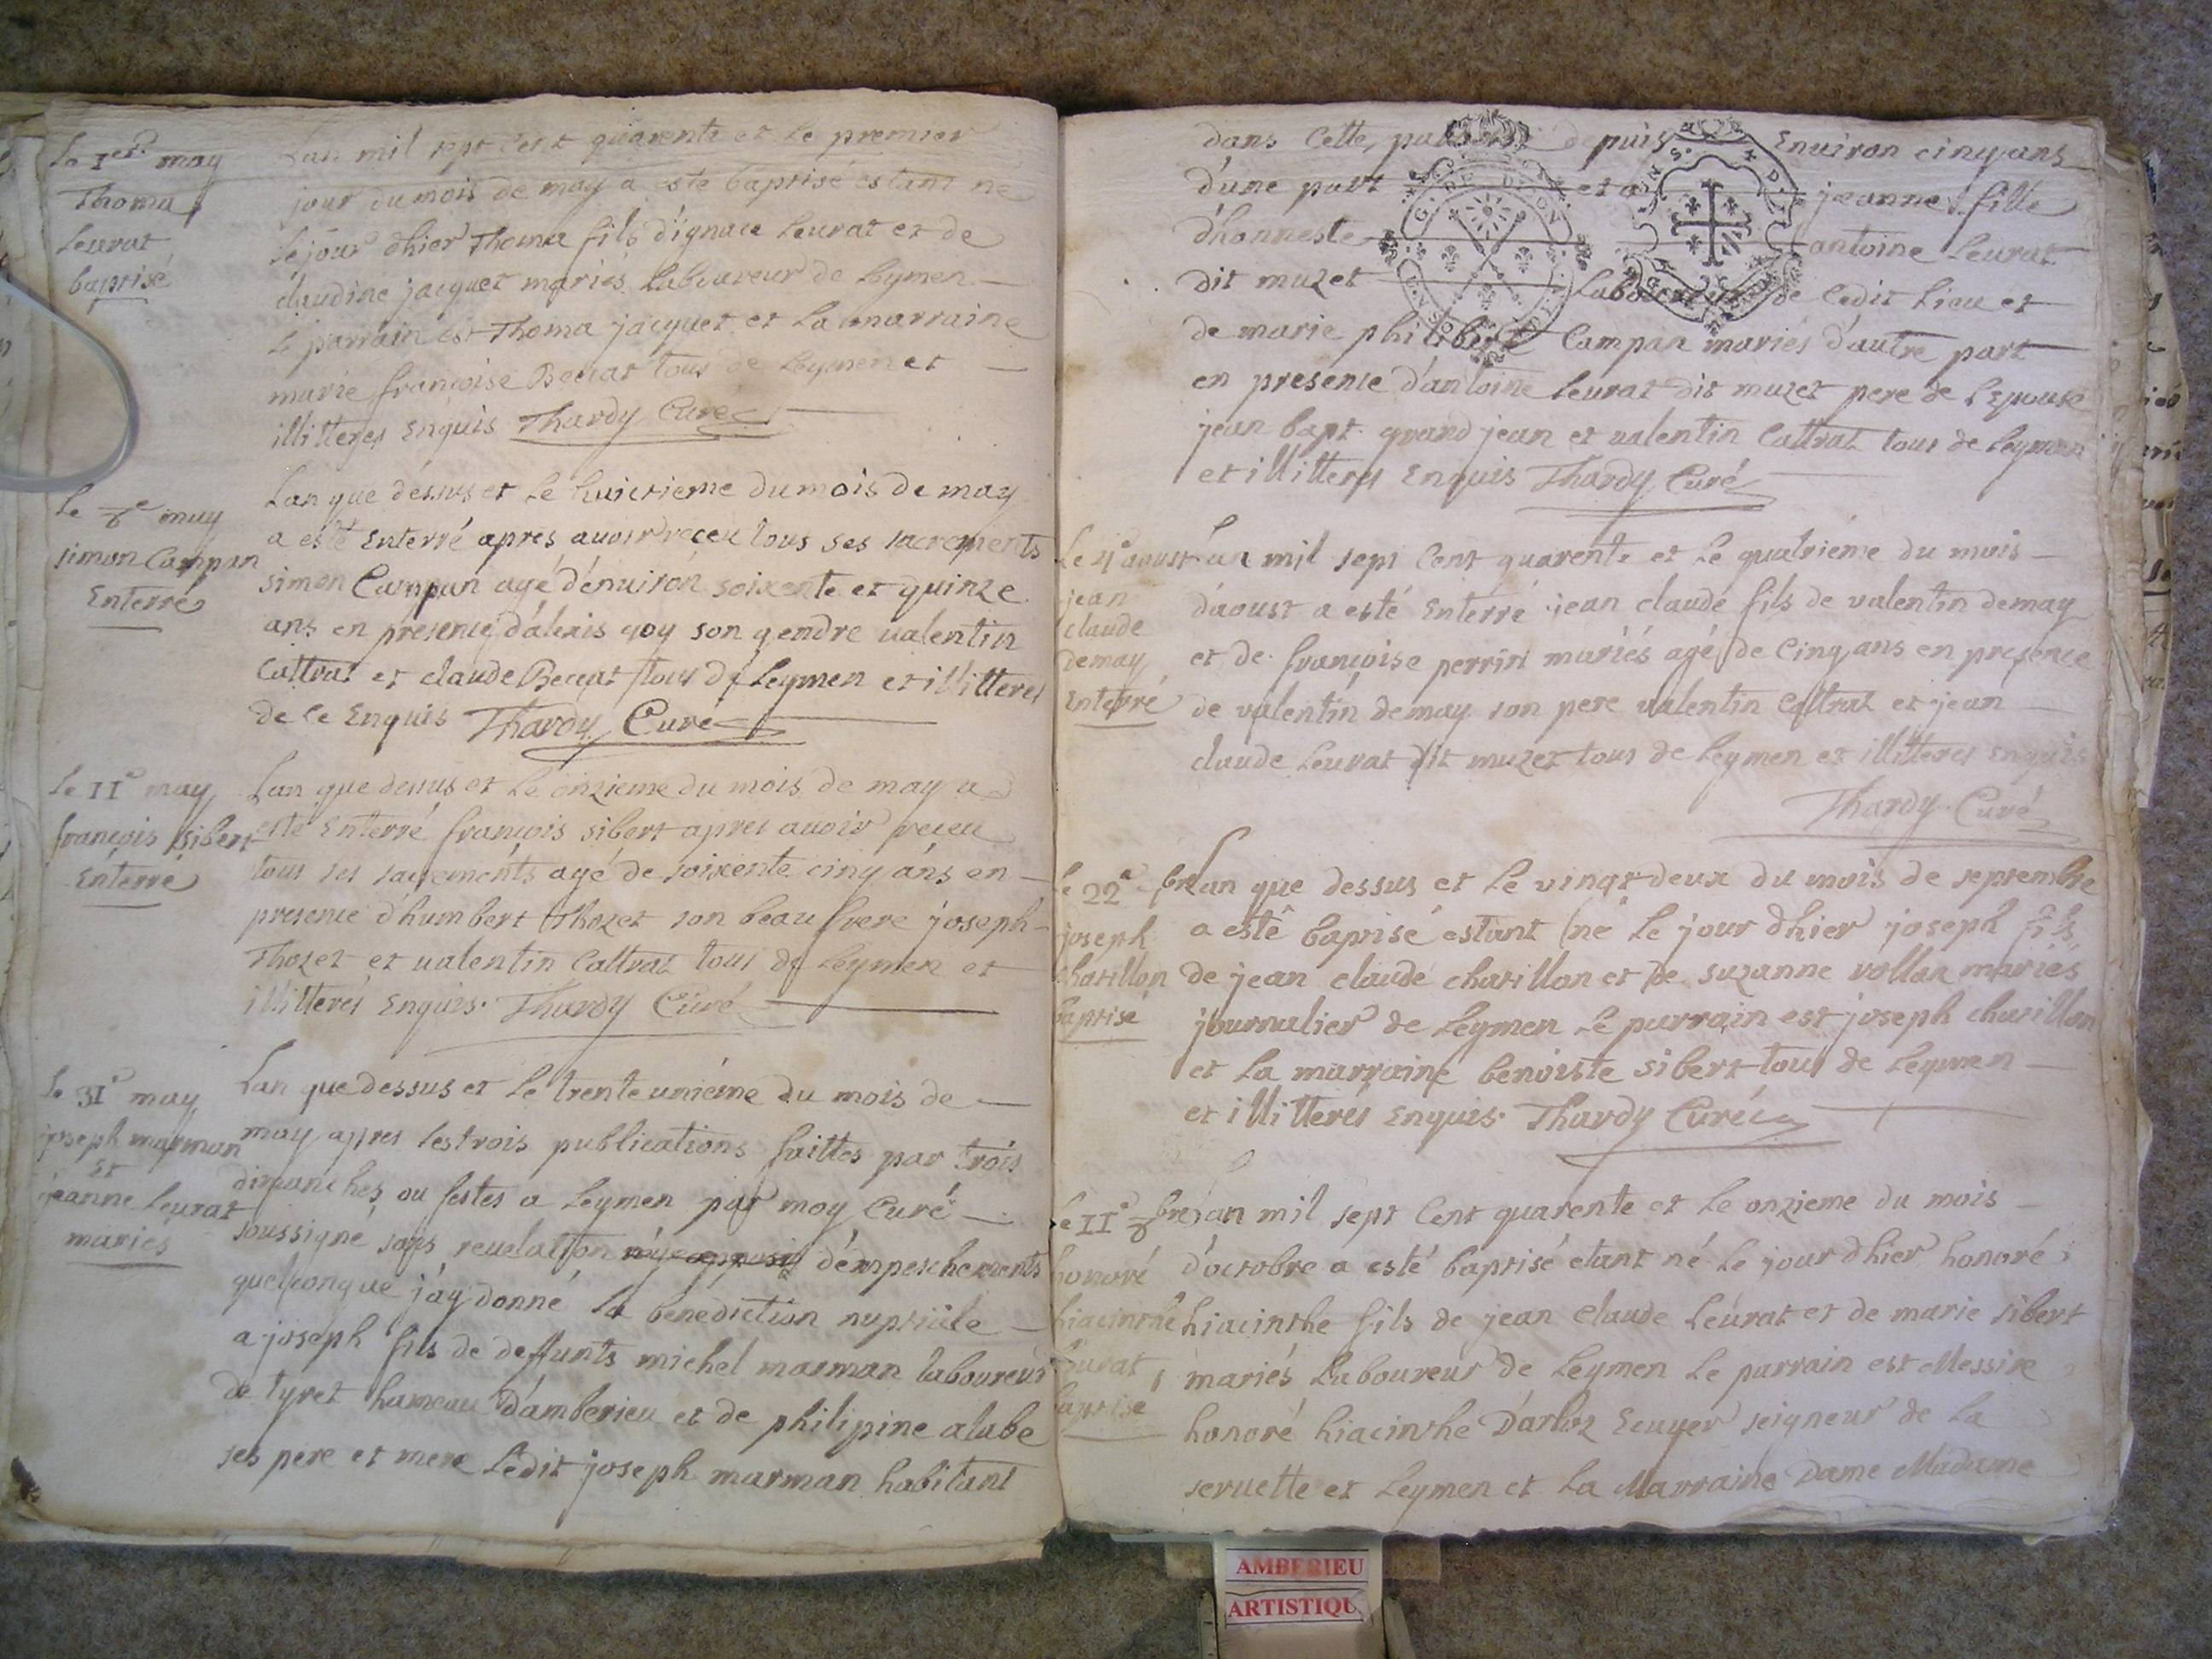 Le 1er may
Thoma
Leurat
baptisé
Lan mil sept Cent quarente et Le premier
jour du mois de may a esté baptisé estant né
Le jour d'hier Thoma fils d'ignace Leurat et de
claudine jacquet mariés Laboureur de Leymen
Le parrain est Thoma jacquet et La marraine
marie françoise Beccat tous de Leymen et
illitterés Enquis Thardy Curé
Le 8e may
simon Campan
Enterré
Lan que dessus et Le huictieme du mois de may
a esté Enterré apres avoir receu tous ses sacrements
simon Campan agé d'environ soixente et quinze
ans en presence d'alexis goy son gendre valentin
Cattraz et claude Beccat tous de Leymen et illitteres
de ce Enquis Thardy Curé
Le 11e may
françois sibert
Enterré
Lan que dessus et Le onzieme du mois de may a
esté Enterré françois sibert apres avoir receu
tous ses sacrements agé de soixente cinq ans en
presence d'humbert Thozet son beau frere joseph
Thozet et valentin Cattraz tous de Leymen et
illitterés Enquis. Thardy Curé
Le 31e may
joseph marman
et
jeanne Leurat
mariés
Lan que dessus et Le trente uniéme du mois de
may apres les trois publications faittes par trois
dimanches ou festes a Leymen par moy Curé
soussigné sans revelation d'empeschements
quelconque j'ay donné La benediction nuptiale
a joseph fils de deffunts michel marman laboureur
de tyret hameau d'amberieu et de philipine alabe
ses pere et mere Ledit joseph marman habitant
dans Cette paroisse depuis Environ cinq ans
d'une part et a jeanne fille
d'honneste antoine Leurat
dit muzet Laboureur de Cedit Lieu et
de marie philiberte Campan mariés d'autre part
en presence d'antoine Leurat dit muzet pere de L'Epouse
jean bapt. grand jean et valentin Cattraz tous de Leymen
et illitteres Enquis Thardy Curé
Le 4e aoust
jean
claude
demay
Enterré
Lan mil sept Cent quarente et Le quatriéme du mois
d'aoust a esté Enterré jean claude fils de valentin demay
et de françoise perrin mariés agé de Cinq ans en presence
de valentin demay son pere valentin Cattraz et jean
claude Leurat dit muzet tous de Leymen et illitteres Enquis
Thardy Curé
Le 22e 7bre
joseph
charillon
baptisé
Lan que dessus et Le vingt deux du mois de septembre
a esté baptisé estant né Le jour d'hier joseph fils
de jean claude charillon et de suzanne vollan mariés
journalier de Leymen Le parrain est joseph charillon
et La marraine benoiste sibert tous de Leymen
et illitterés Enquis. Thardy Curé
Le 11e 8bre
honoré
hiacinthe
Leurat
baptisé
Lan mil sept Cent quarente et Le onzieme du mois
d'octobre a esté baptisé etant né Le jour d'hier honoré
hiacinthe fils de jean Claude Leurat et de marie sibert
mariés Laboureur de Leymen Le parrain est Messire
honoré hiacinthe D'arloz Ecuyer seigneur de La
servette et Leymen et La Marraine Dame Madame
AMBERIEU
ARTISTIQU